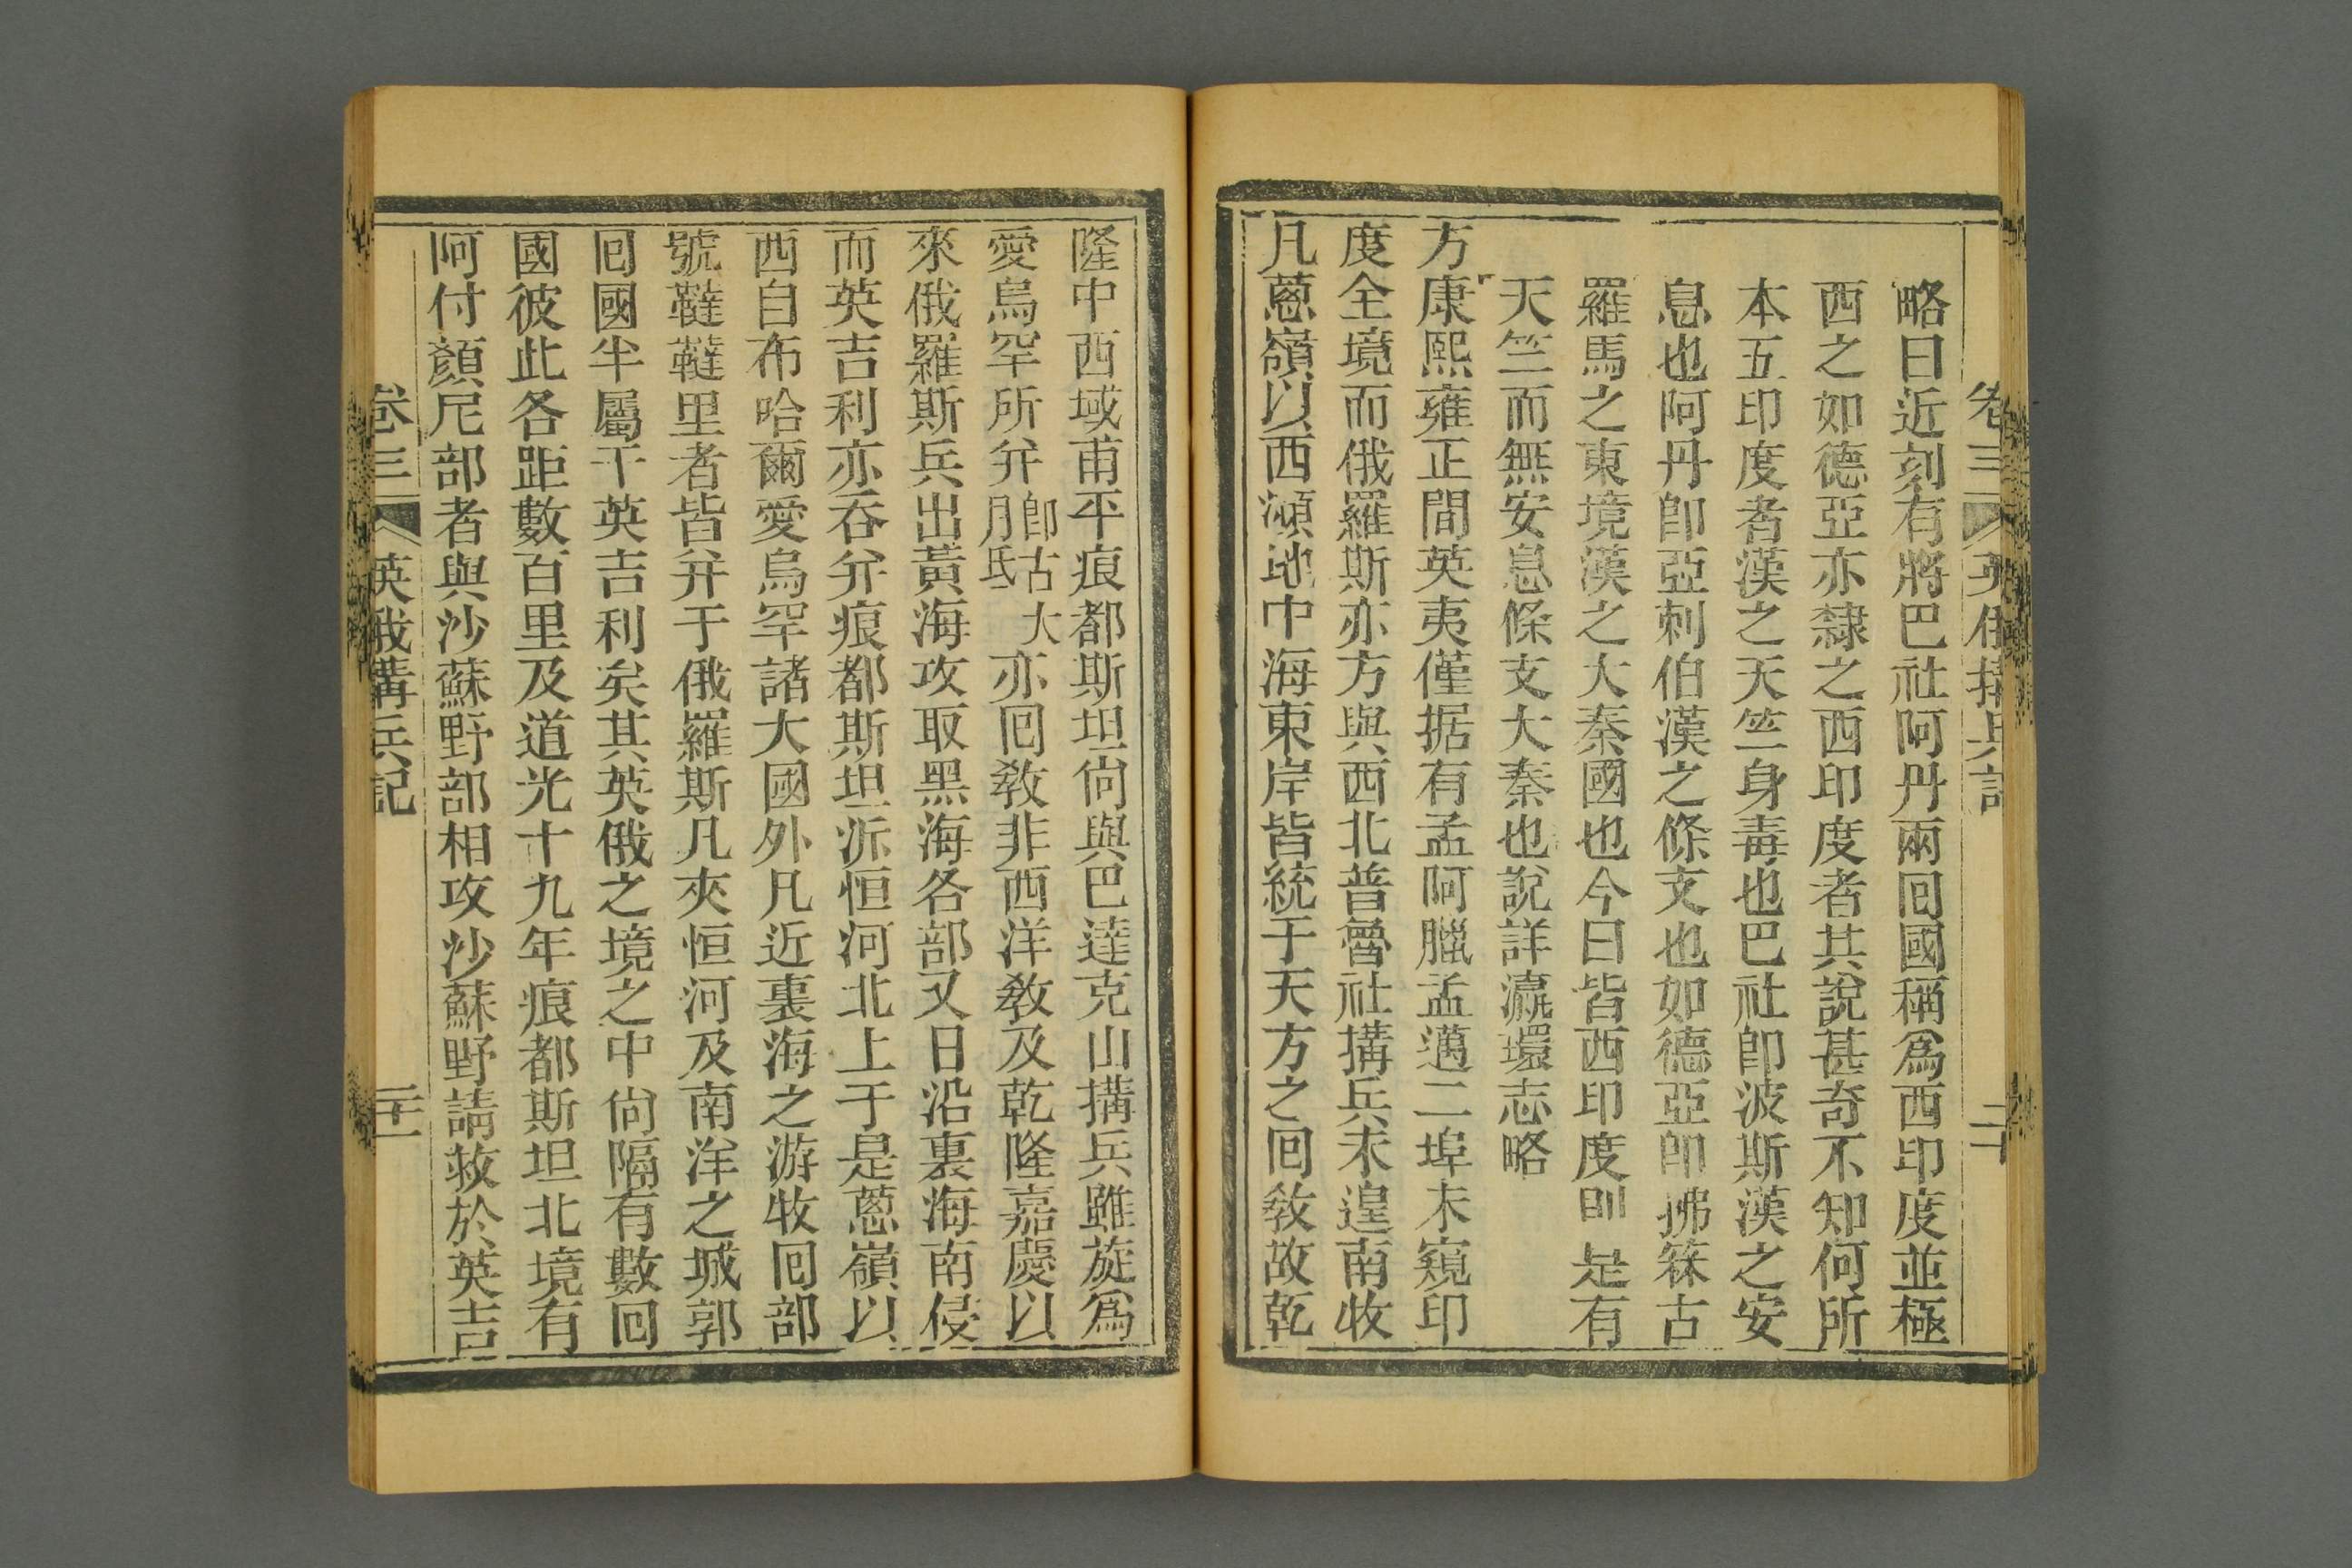 卷三 英俄搆兵記 二十
略曰近刻有將巴社阿丹兩回國稱爲西印度並極
西之如德亞亦隸之西印度者其說甚奇不知何所
本五印度者漢之天竺身毒也巴社卽波斯漢之安
息也阿丹卽亞刺伯漢之條支也如德亞卽拂箖古
羅馬之東境漢之大秦國也今曰皆西印度則是有
天竺而無安息條支大秦也說詳瀛環志略
方康熙雍正間英夷僅据有孟阿臘孟邁二埠未窺印
度全境而俄羅斯亦方與西北普魯社搆兵未遑南牧
凡蔥嶺以西瀕地中海東岸皆統于天方之回敎故乾
隆中西域甫平痕都斯坦尙與巴達克山搆兵雖旋爲
愛烏罕所幷卽古大月氏亦回敎非西洋敎及乾隆嘉慶以
來俄羅斯兵出黃海攻取黑海各部又日沿裏海南侵
而英吉利亦吞幷痕都斯坦泝恒河北上于是蔥嶺以
西自布哈爾愛烏罕諸大國外凡近裏海之游牧回部
號韃韃里者皆幷于俄羅斯凡夾恒河及南洋之城郭
回國半屬干英吉利矣其英俄之境之中尙隔有數回
國彼此各距數百里及道光十九年痕都斯坦北境有
阿付顏尼部者與沙蘇野部相攻沙蘇野請救於英吉
卷三 英俄搆兵記 二十一